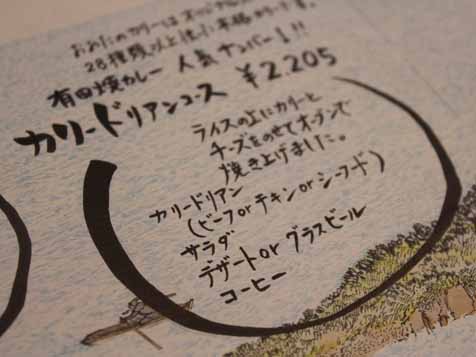 おおたのカリーはオリジナル
28種類以上使った本格カリーです。
有田焼カレー 人気ナンバー1!!
カリードリアンコース ¥2.205
ライスの上にカリーと
チーズをのせてオーブンで
焼き上げました。
カリードリアン
(ビーフorチキンorシーフード)
サラダ
デザートorグラスビール
コーヒー